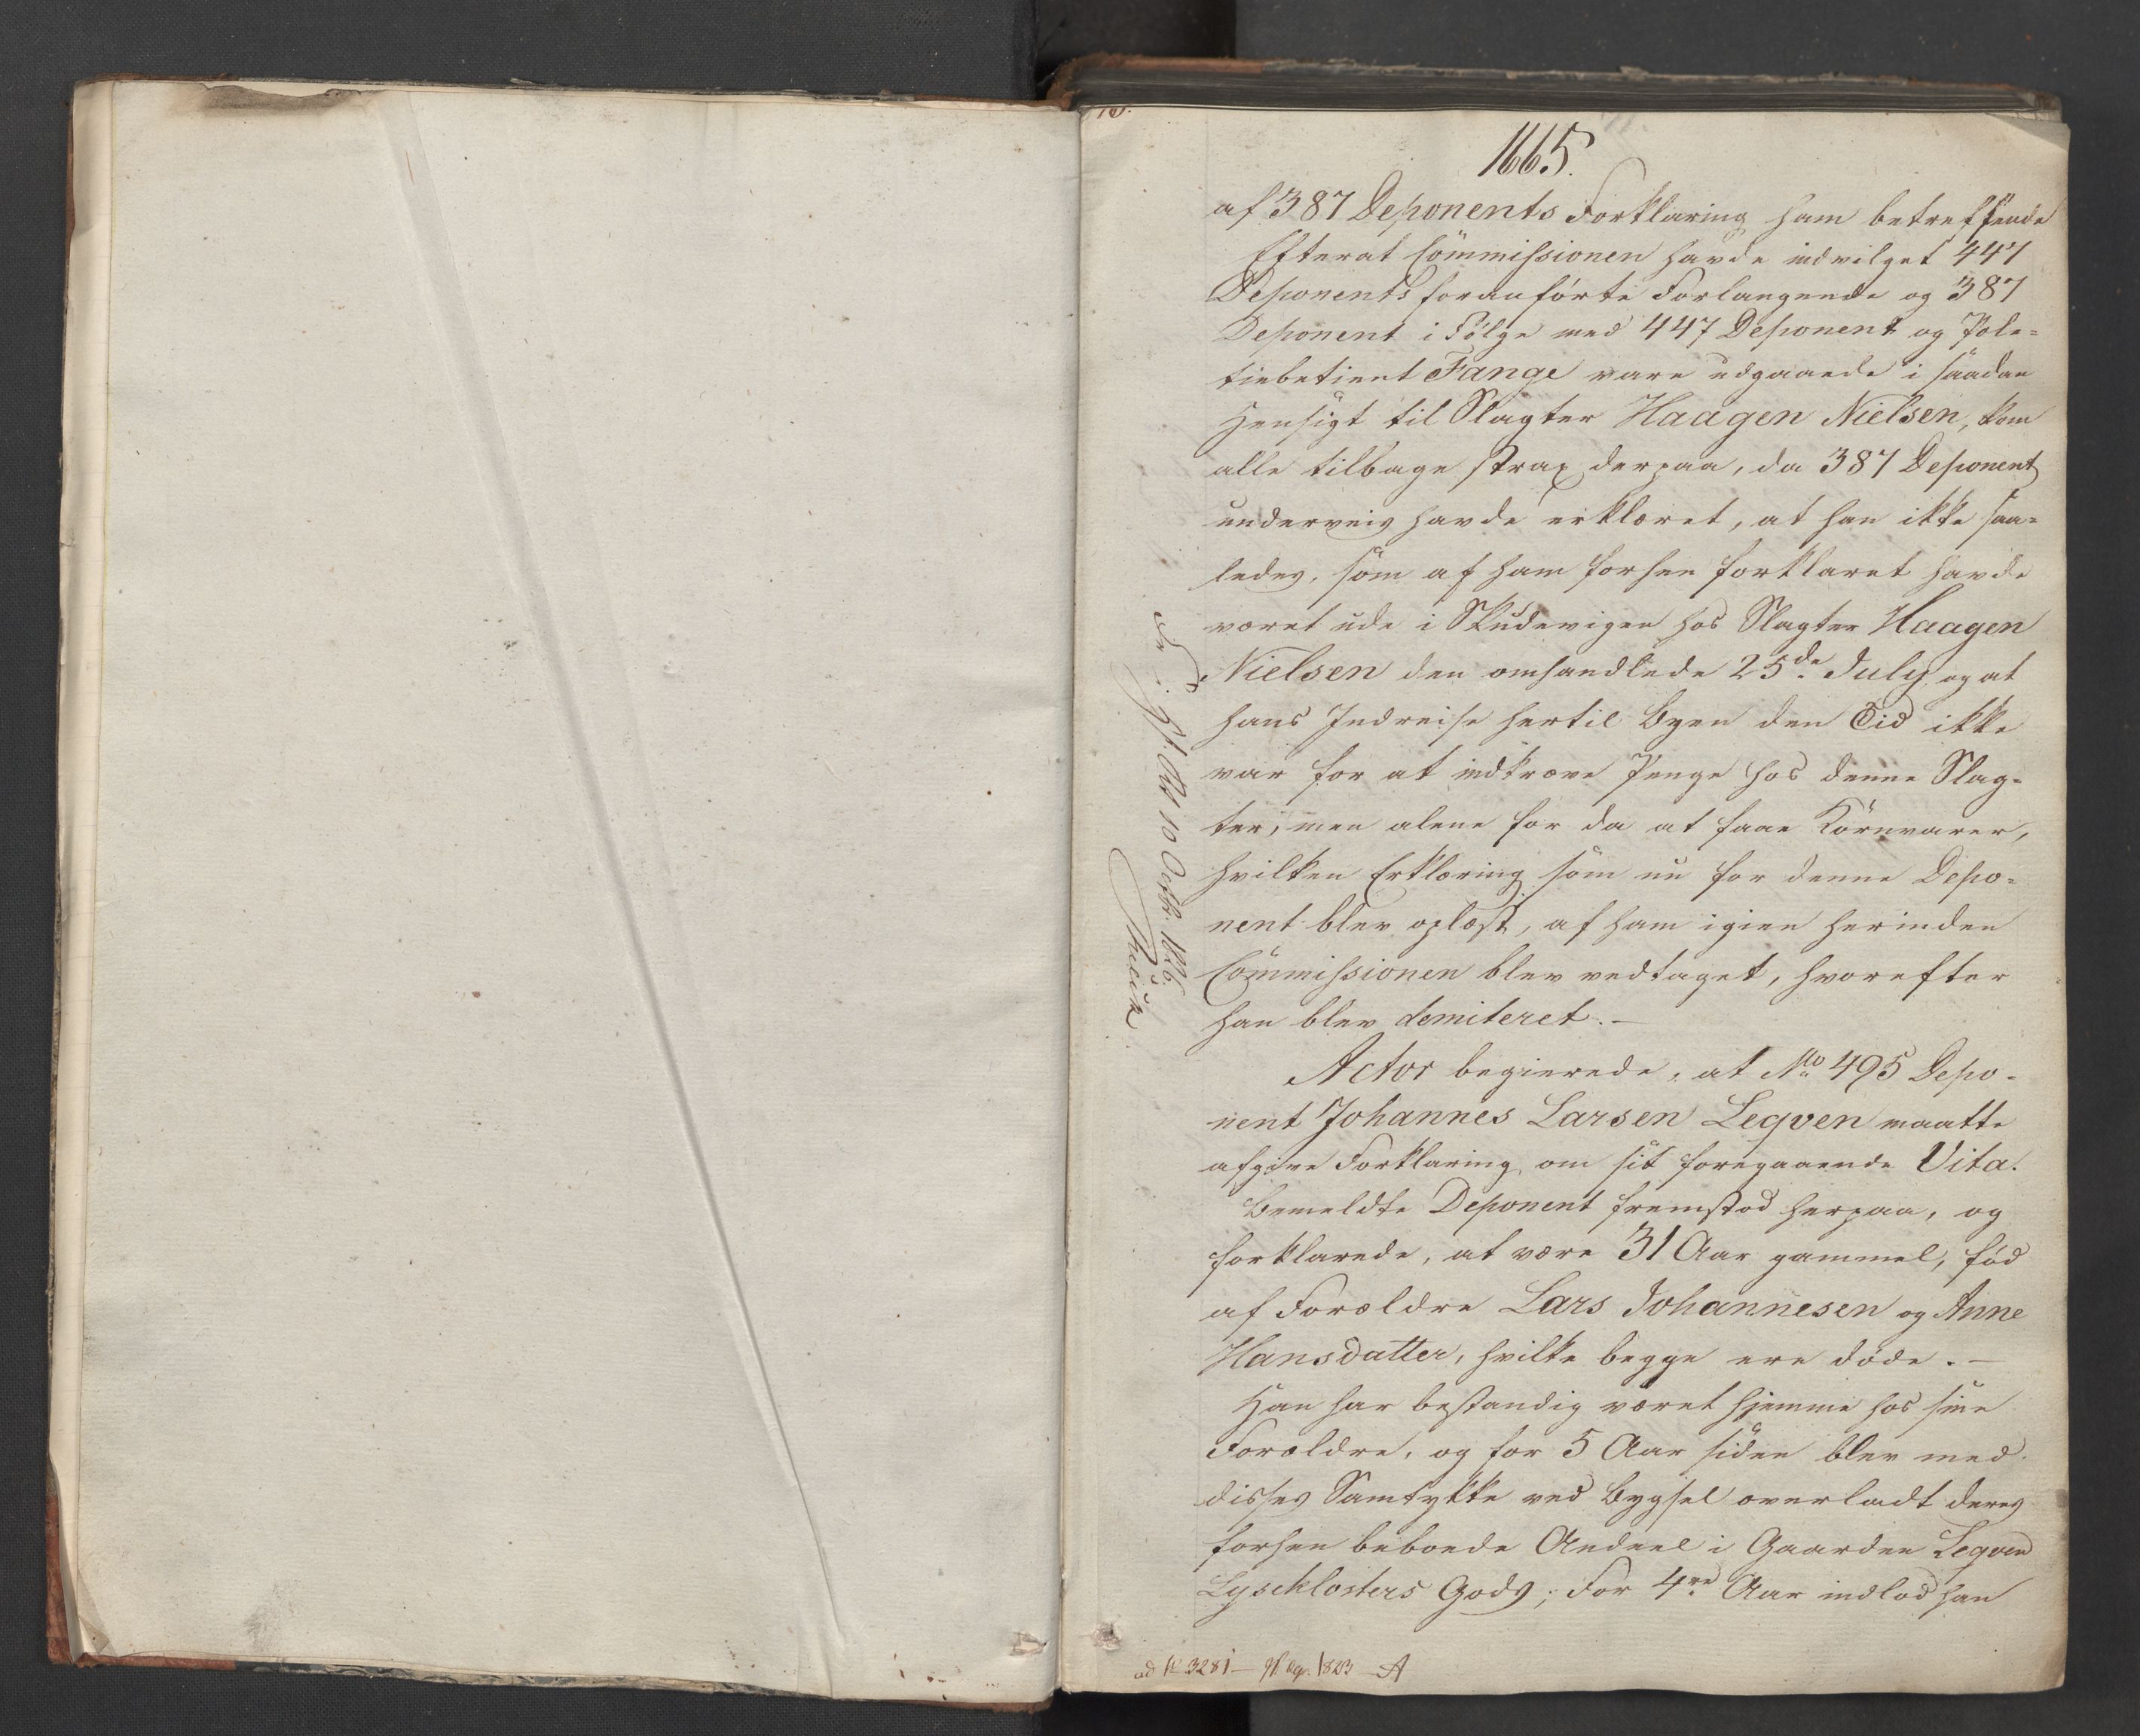 1665.
af 387 Deponents Forklaring ham betreffende
Efterat Commissionen havde indvilget 447
Deponents foranførte Forlangende og 387
Deponent i Følge med 447 Deponent og Pole-
tiebetient Fange vare udgaaede i saadan
Hensigt til Slagter Haagen Nielsen, kom
alle tilbage strax derpaa, da 387 Deponent
underveis havde erklæret, at han ikke saa-
ledes, som af ham forhen forklaret havde
været ude i Skudevigen hos Slagter Haagen
Nielsen den omhandlede 25de July og at
hans Indreise hertil Byen den Tid ikke
var for at indkræve Penge hos denne Slag-
ter, men alene for da at faae Kornvarer,
hvilken Erklæring som nu for denne Depo-
nent blev oplæst, af ham igien herinden
Commissionen blev vedtaget, hvorefter
han blev demiteret. —
Actor begierede, at No 495 Depo-
nent Johannes Larsen Legven maatte
afgive Forklaring om sit foregaaende Vita.
Bemeldte Deponent fremstod herpaa, og
forklarede, at være 31 Aar gammel, fød
af Forældre Lars Johannesen og Anne
Hansdatter, hvilke begge ere døde. —
Han har bestandig været hjemme hos sine
Forældre, og for 5 Aar siden blev med
disses Samtykke ved Bygsel overladt deres
forhen beboede Andeel i Gaarden Legven
Lyseklosters Gods; For 4re Aar indlod han
10 Octbr. 1826.
ad No 3281 — 1823 A